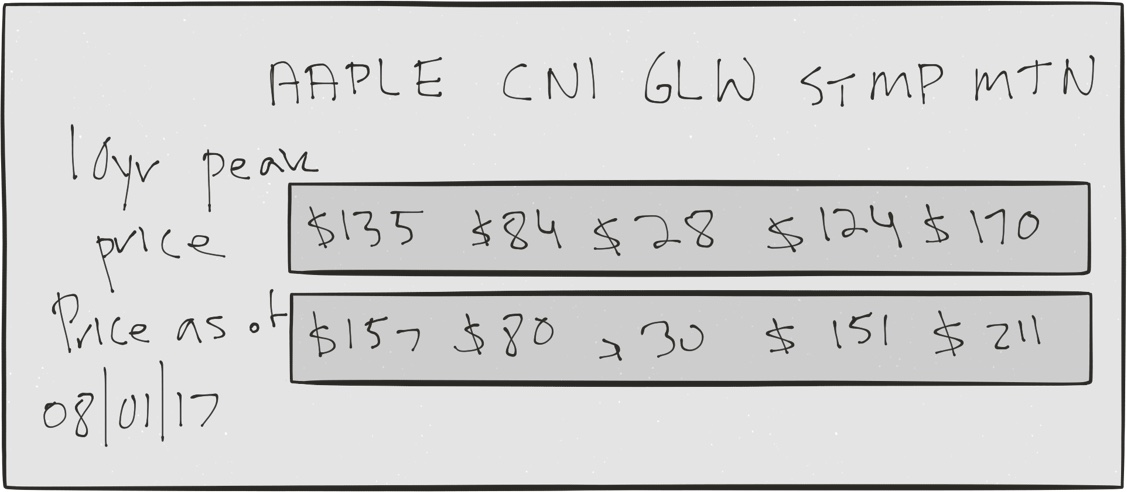 AAPLE CNI GLW STMP MTN
10yr peak
price
$135 $84 $28 $124 $170
Price as of
$157 $80 30 $ 151 $ 211
08/01/17